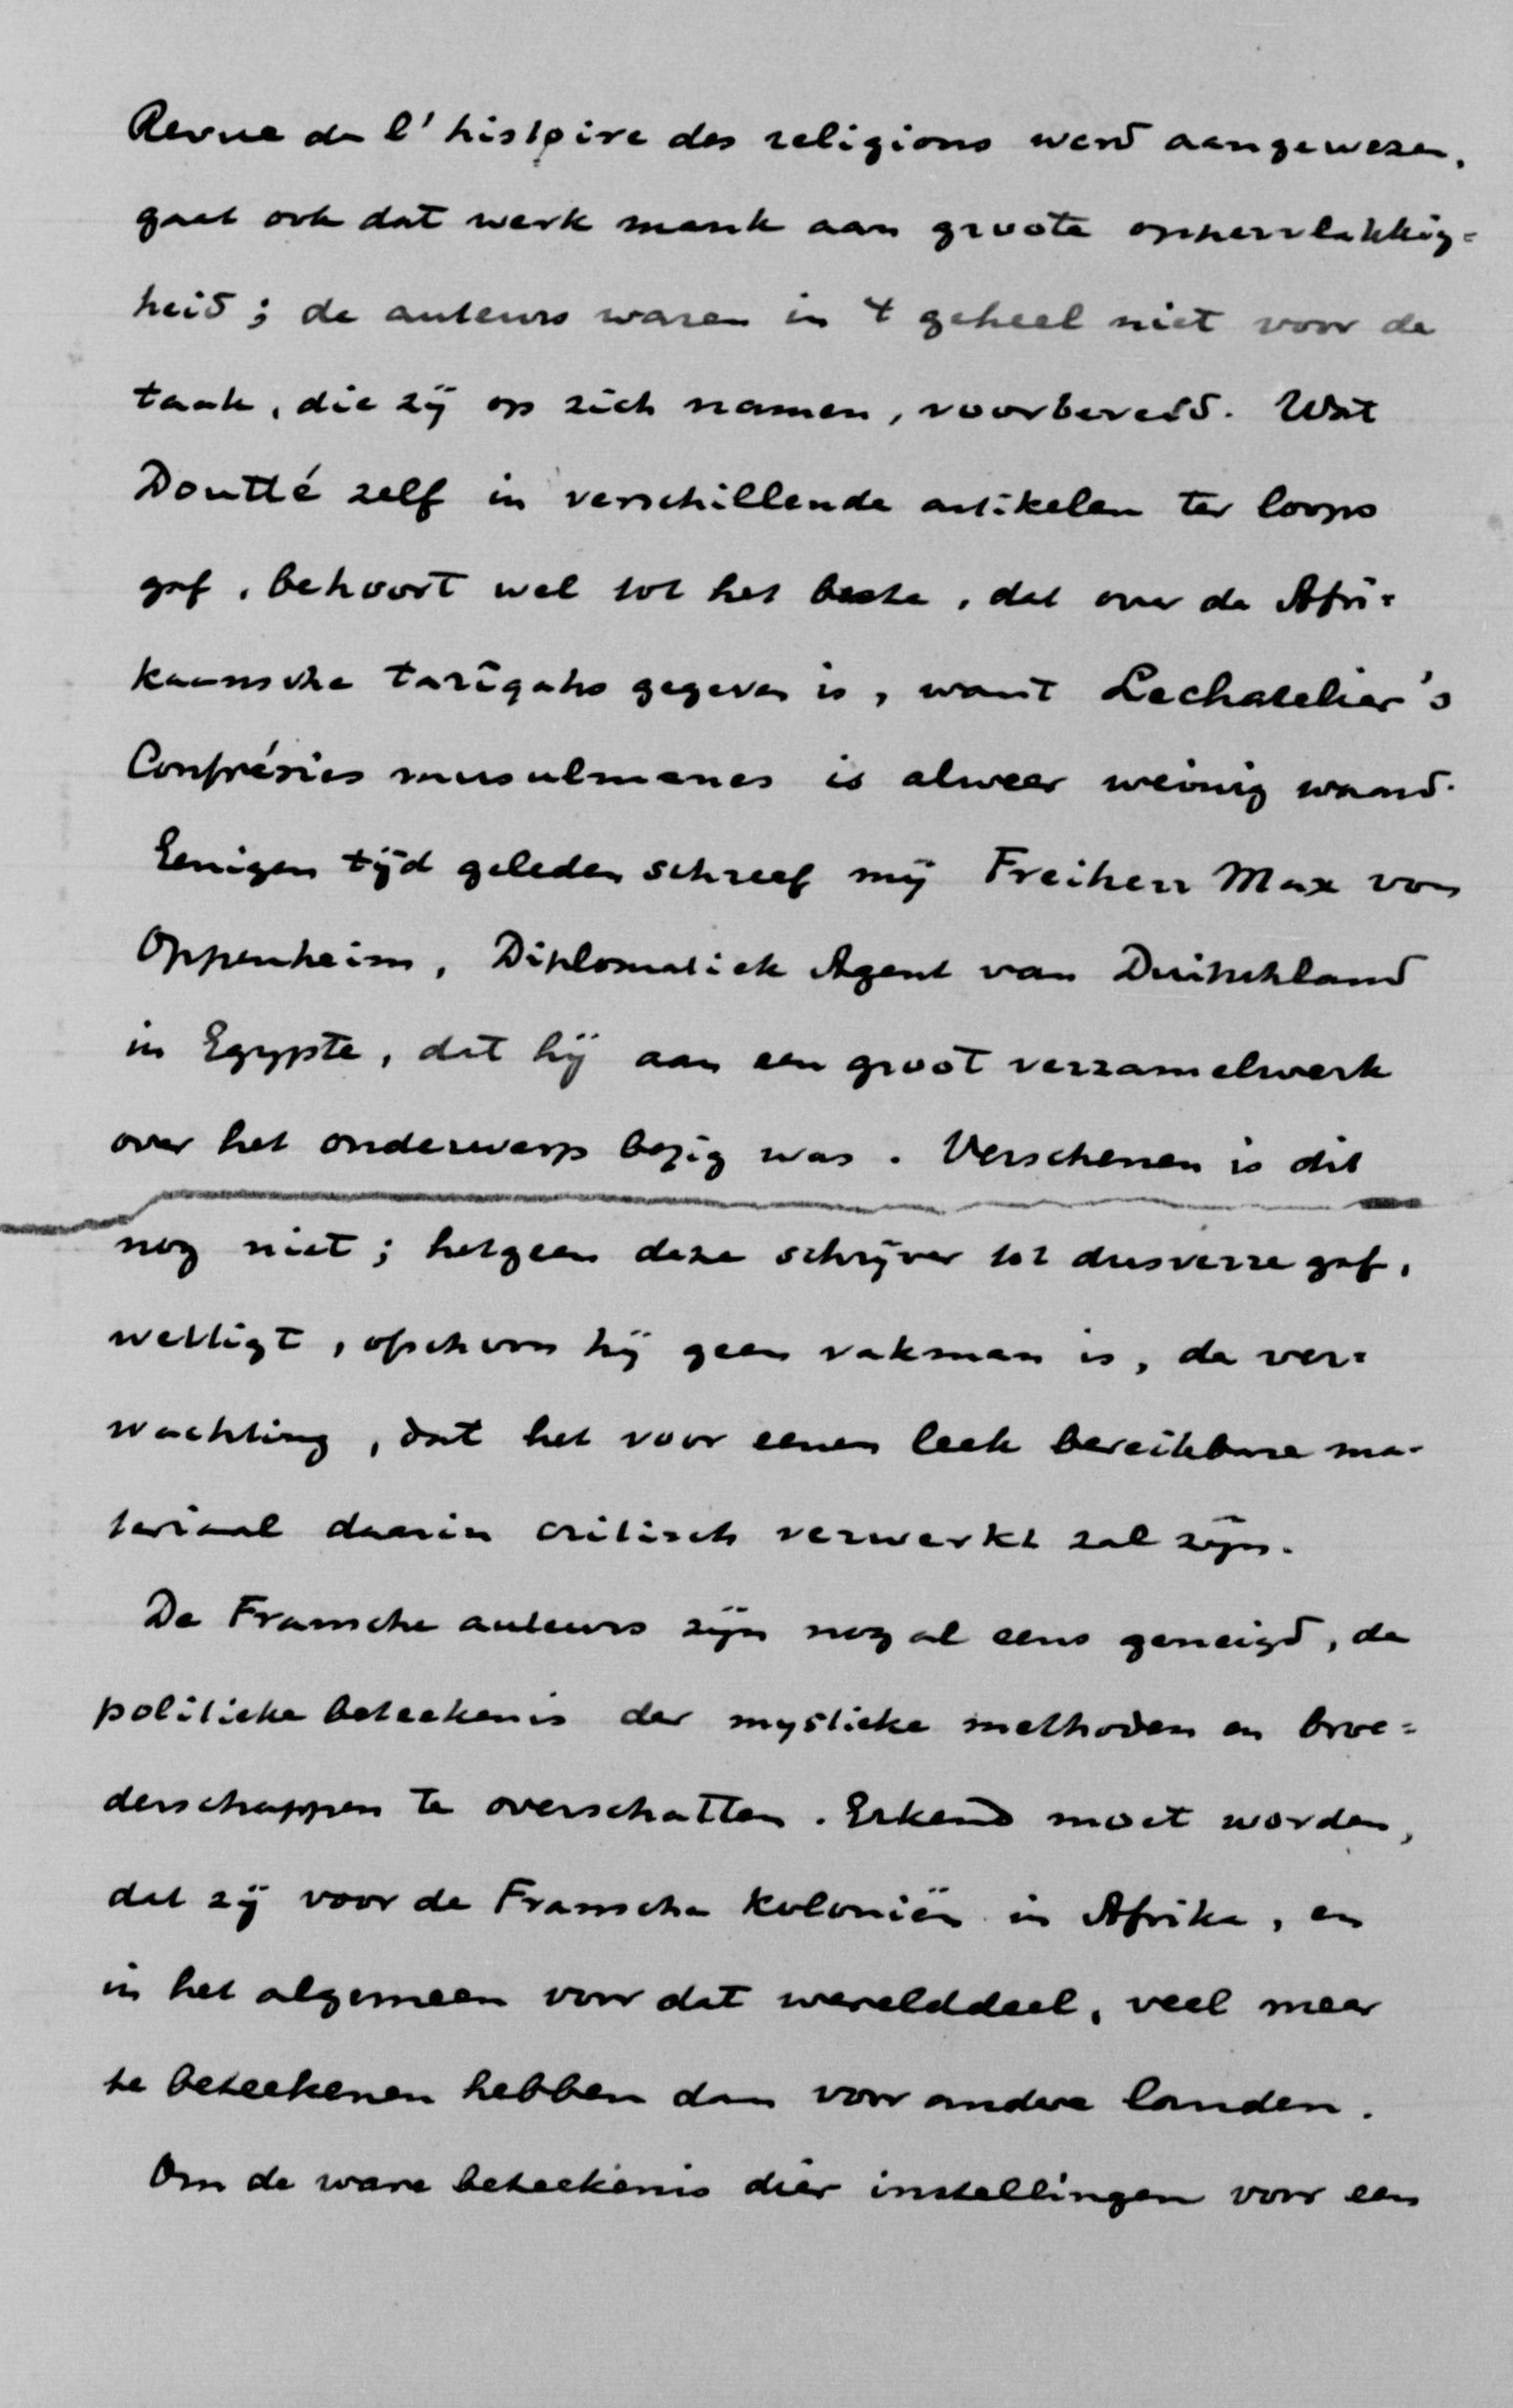 Revue de l'histoire des religions werd aangewezen,
gaat ook dat werk mank aan groote oppervlakkig=
heid; de auteurs waren in 't geheel niet voor de
taak, die zij op zich namen, voorbereid. Wat
Doutté zelf in verschillende artikelen ter loops
gaf, behoort wel tot het beste, dat over de Afri=
kaansche tarîqahs gegeven is, want Lechatelier's
Confréries musulmanes is alweer weinig waard.
Eenigen tijd geleden schreef mij Freiherr Max von
Oppenheim, Diplomatiek Agent van Duitschland
in Egypte, dat hij aan een groot verzamelwerk
over het onderwerp bezig was. Verschenen is dit
nog niet; hetgeen deze schrijver tot dusverre gaf,
wettigt, ofschoon hij geen vakman is, de ver=
wachting, dat het voor eenen leek bereikbare ma-
teriaal daarin critisch verwerkt zal zijn.
De Fransche auteurs zijn nog al eens geneigd, de
politieke beteekenis der mystieke methoden en broe=
derschappen te overschatten. Erkend moet worden,
dat zij voor de Fransche koloniën in Afrika, en
in het algemeen voor dat werelddeel, veel meer
te beteekenen hebben dan voor andere landen.
Om de ware beteekenis dier instellingen voor een